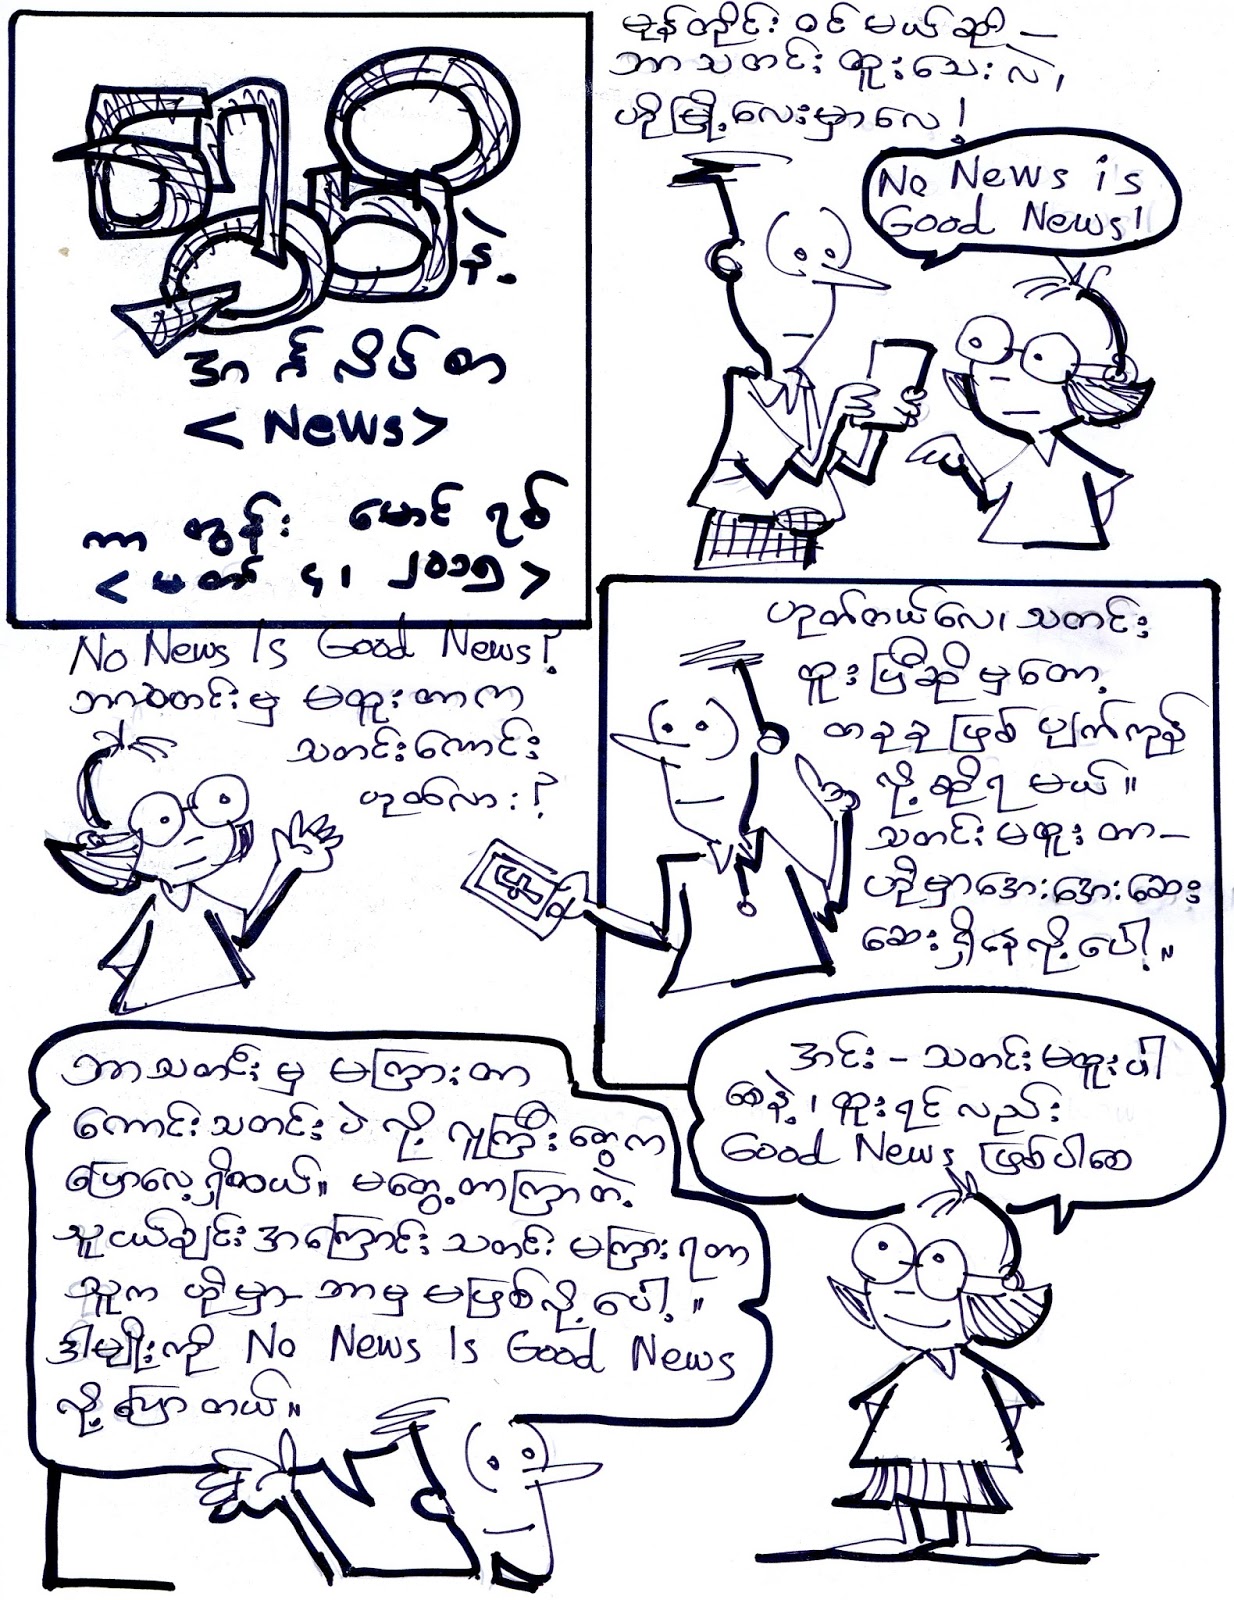 နဲ့
အင်္ဂလိပ်စာ
< News >
ကာတွန်း မောင်ရစ်
< မတ် ၄၊ ၂၀၁၅ >
မုန်တိုင်းဝင်မယ်ဆို –
ဘာသတင်းထူးသေးလဲ၊
ဟိုမြို့လေးမှာလေ!
No News is
Good News!
No News Is Good News?
ဘာသတင်းမှ မထူးတာက
သတင်းကောင်း
ဟုတ်လား?
ဟုတ်တယ်လေ၊ သတင်း
ထူးပြီဆိုမှတော့
တခုခု ဖြစ်ပျက်ကုန်
လို့ဆိုရမယ်။
သတင်းမထူးတာ–
ဟိုမှာအေးအေးဆေး
ဆေးရှိနေလို့ပေါ့။
ဘာသတင်းမှ မကြားတာ
ကောင်းသတင်းပဲလို့ လူကြီးတွေက
ပြောလေ့ရှိတယ်။ မတွေ့တာကြာတဲ့
သူငယ်ချင်းအကြောင်း သတင်းမကြားရတာ
သူက ဟိုမှာ ဘာမှမဖြစ်လို့ပေါ့။
ဒါမျိုးကို No News Is Good News
လို့ပြောတယ်။
အင်း – သတင်းမထူးပါ
စေနဲ့၊ ထူးရင်လည်း
Good News ဖြစ်ပါစေ